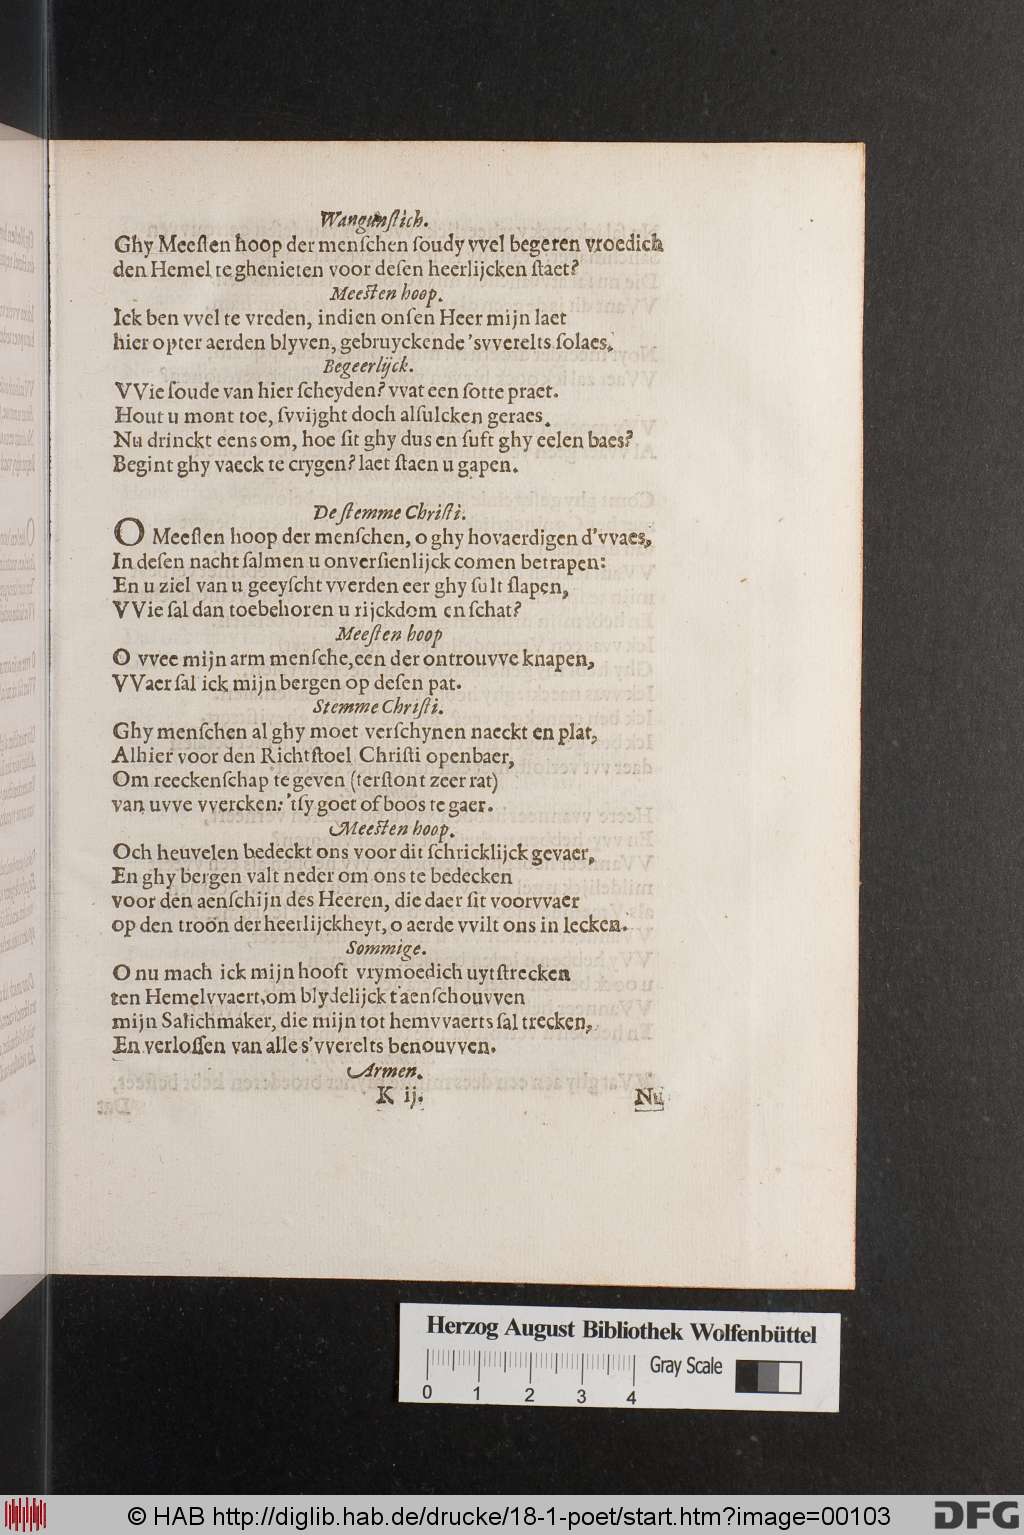 Wangunſtich.
Ghy Meeſten hoop der menſchen ſoudy vvel begeren vroedich
den Hemel te ghenieten voor deſen heerlijcken ſtaet?
Meeſten hoop.
Ick ben vvel te vreden, indien onſen Heer mijn laet
hier opter aerden blyven, gebruyckende 'svverelts ſolaes.
Begeerlijck.
VVie ſoude van hier ſcheyden? vvat een ſotte praet.
Hout u mont toe, ſvvijght doch alſulcken geraes.
Nu drinckt eens om, hoe ſit ghy dus en ſuft ghy eelen baes?
Begint ghy vaeck te crygen? laet ſtaen u gapen.
De ſtemme Chriſti.
O Meeſten hoop der menſchen, o ghy hovaerdigen d'vvaes,
In deſen nacht ſalmen u onverſienlijck comen betrapen:
En u ziel van u geeyſcht vverden eer ghy ſult ſlapen,
VVie ſal dan toebehoren u rijckdom en ſchat?
Meeſten hoop
O vvee mijn arm menſche, een der ontrouvve knapen,
VVaer ſal ick mijn bergen op deſen pat.
Stemme Chriſti.
Ghy menſchen al ghy moet verſchynen naeckt en plat,
Alhier voor den Richtſtoel Chriſti openbaer,
Om reeckenſchap te geven (terſtont zeer rat)
van uvve vvercken: 'tſy goet of boos te gaer.
Meeſten hoop.
Och heuvelen bedeckt ons voor dit ſchricklijck gevaer,
En ghy bergen valt neder om ons te bedecken
voor den aenſchijn des Heeren, die daer ſit voorvvaer
op den troon der heerlijckheyt, o aerde vvilt ons in lecken.
Sommige.
O nu mach ick mijn hooft vrymoedich uytſtrecken
ten Hemelvvaert, om blydelijck t'aenſchouvven
mijn Salichmaker, die mijn tot hemvvaerts ſal trecken,
En verloſſen van alle s'vverelts benouvven.
Armen.
K ij.
Nu
Herzog August Bibliothek Wolfenbüttel
Gray Scale
0 1 2 3 4
© HAB http://diglib.hab.de/drucke/18-1-poet/start.htm?image=00103
DFG